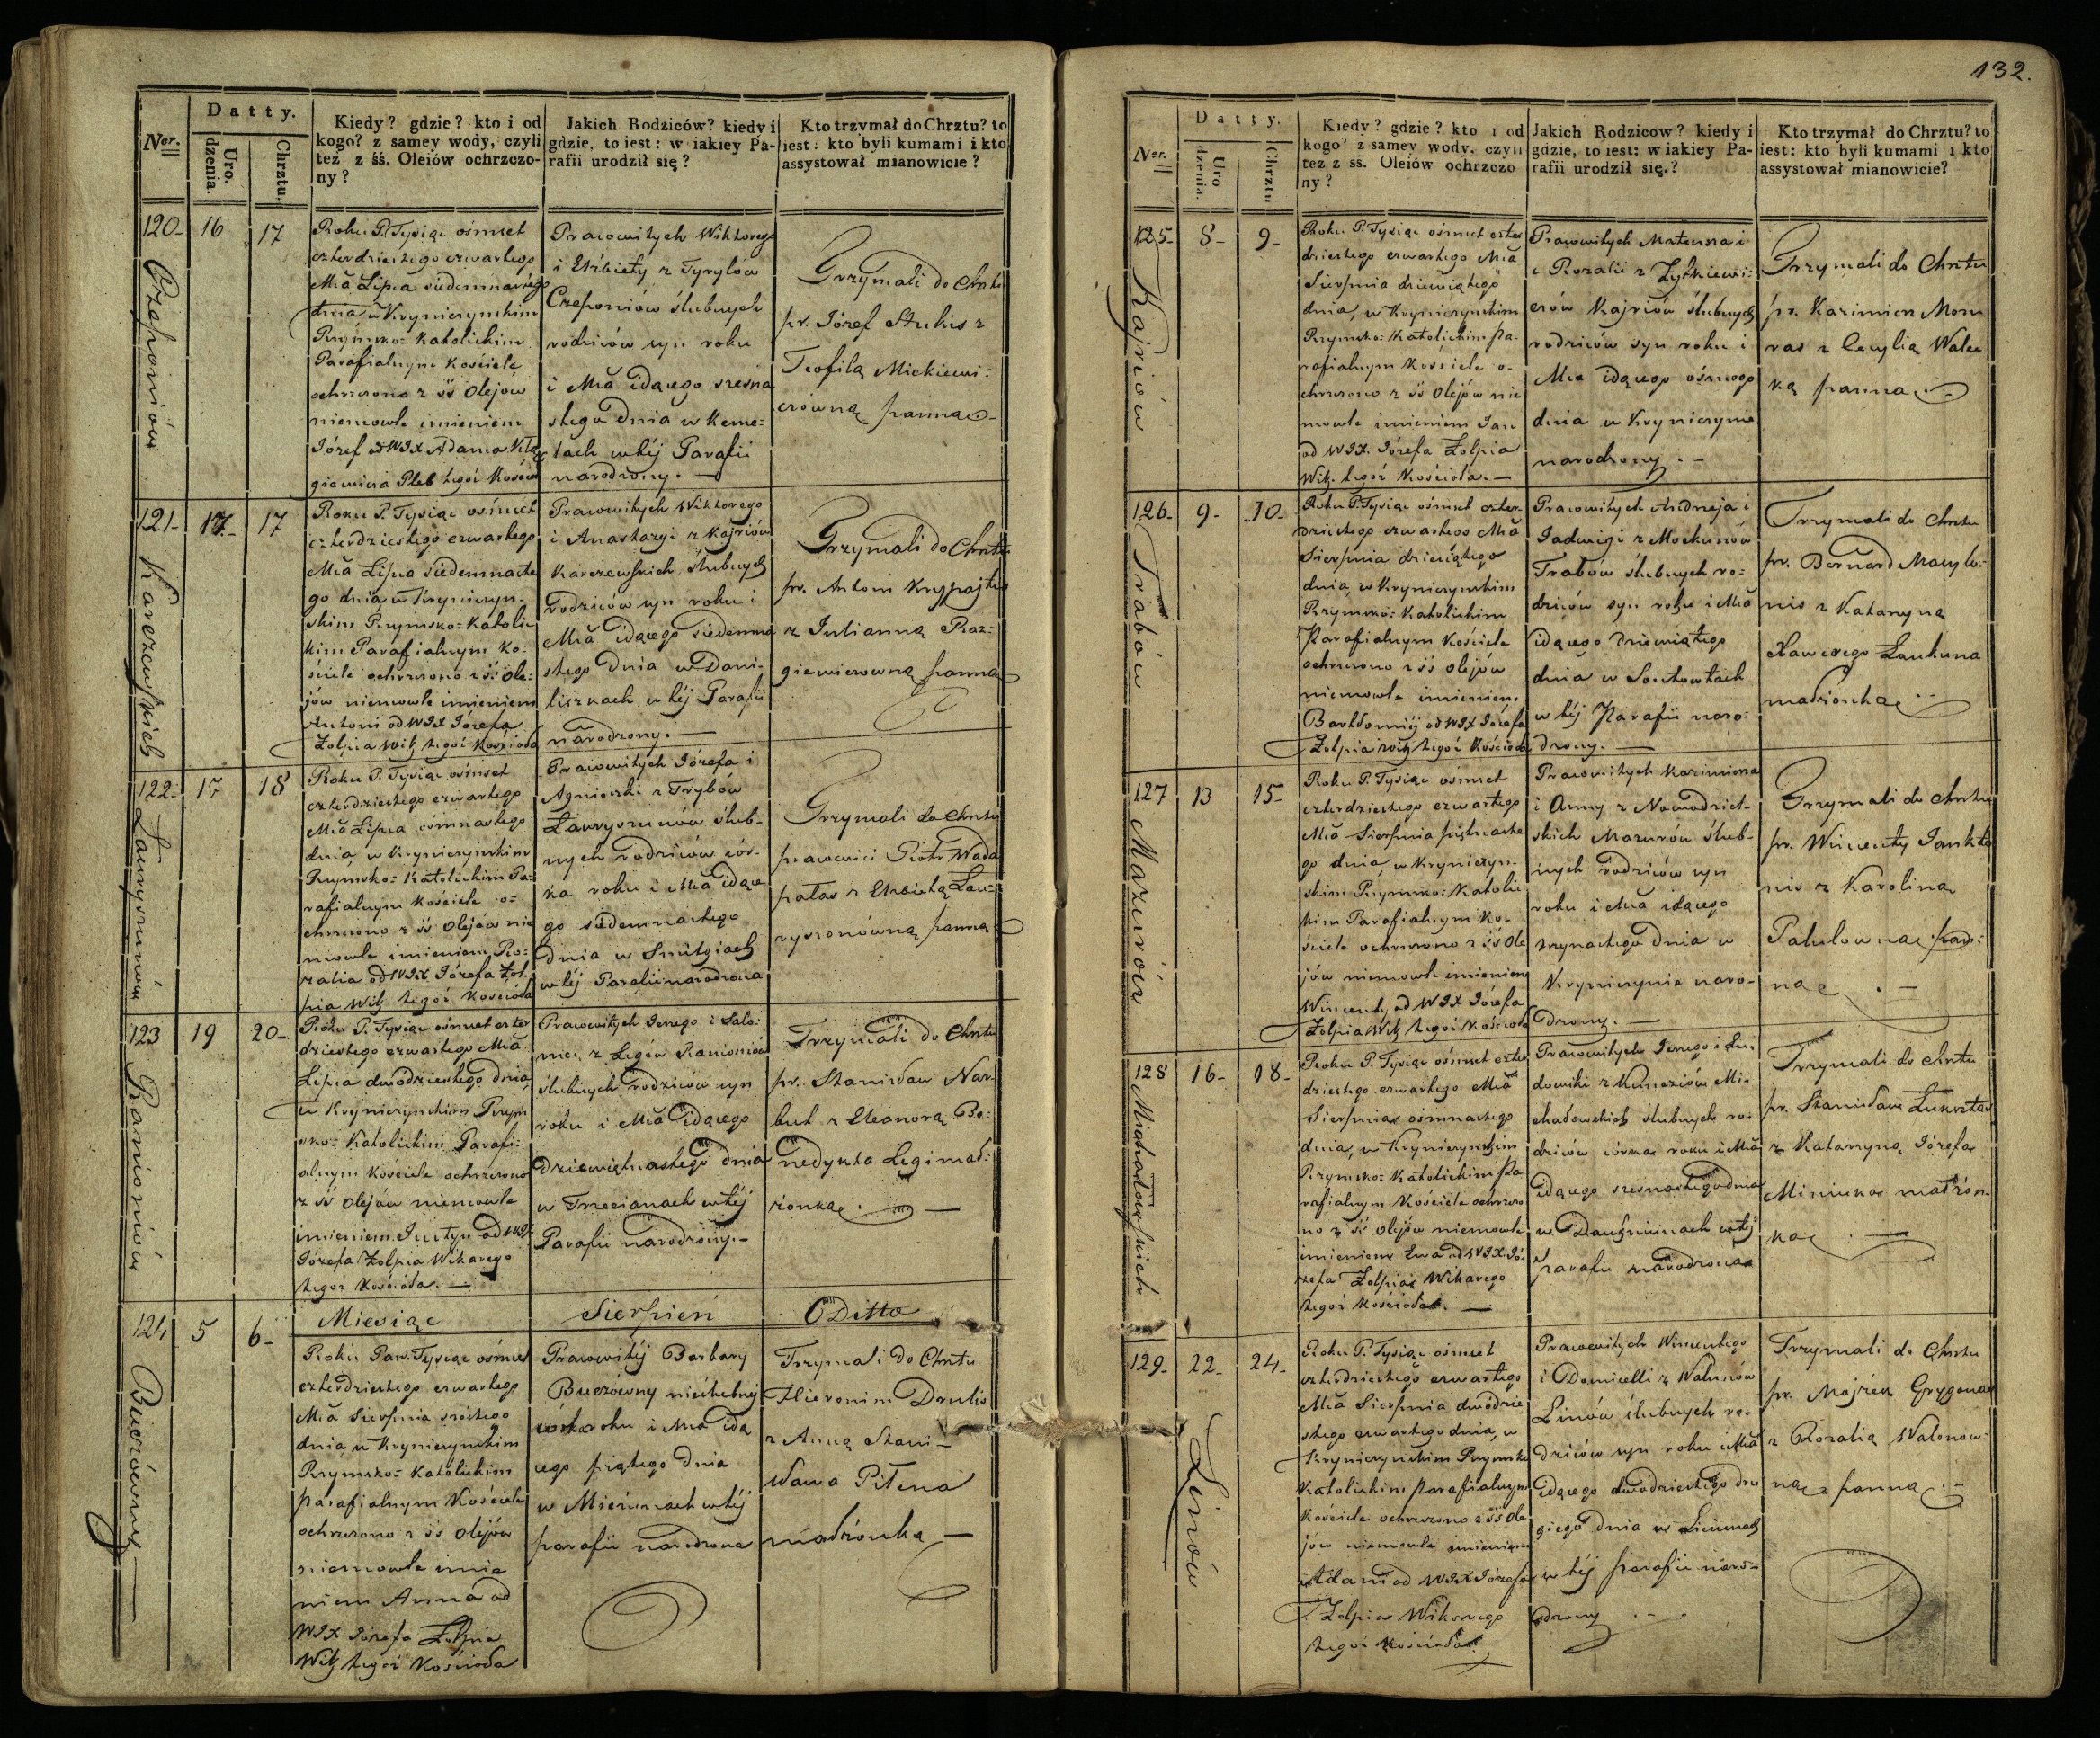 132.
Datty.
Ner.
Uro.
dzenia.
Chrztu.
Kiedy? gdzie? kto i od
kogo? z samey wody, czyli
też z śś. Oleiów ochrzczo-
ny?
Jakich Rodziców? kiedy i
gdzie, to iest: w iakiey Pa-
rafii urodził się?
Kto trzymał do Chrztu? to
iest: kto byli kumami i kto
assystował mianowicie?
120-
16
17
Czeponiów
Roku P. Tysiąc ośmset
czterdziestego czwartego
Mca Lipca siedemnastego
dnia w Krynicznyskim
Rzymsko=Katolickim
Parafialnym Kościele
ochrzczono z śś Olejów
niemowle imieniem
Józef od WJX Adama
Pleb tegoż Kościoła
Pracowitych Wiktorego
i Elżbiety z Tyrylów
Czeponiów ślubnych
rodziców syn roku
i Mca idącego szesna
stego dnia w Keme=
lach w téj Parafii
narodzony. —
Trzymali do Chrztu
pr. Józef Stukis z
Teofilą Mickiewi=
czówną panną
121-
17-
17
Karczewskich
Roku P. Tysiąc ośmset
czterdziestego czwartego
Mca Lipca siedemnaste
go dnia w Kryniczyn-
skim Rzymsko=Katolic
kim Parafialnym Ko-
ściele ochrzczono z śś Ole=
jów niemowle imieniem
Antoni od WJX Józefa
Zołpia Wik tegoż Kościoła
Pracowitych Wiktorego
i Anastazyi z Kajriów
Karczewskich ślubnych
rodziców syn roku i
Mca idącego siedemna
stego dnia w Dani-
liszkach w téj Parafii
narodzony. —
Trzymali do Chrztu
pr. Antoni
z Julianną Raz=
giewiczowną panną
122-
17
18
Ławrysznów
Roku P. Tysiąc ośmset
czterdziestego czwartego
Mca Lipca ośmnastego
dnia w Kryniczynskim
Rzymsko=Katolickim Pa=
rafialnym Kościele o=
chrzczono z śś Olejów nie
mowle imieniem Ro=
zalia od WJX Józefa Zoł.
pia Wik tegoż Kościoła
Pracowitych Józefa i
Agnieszki z Trybów
Ławrysznów ślub-
nych rodziców cór-
ka roku i Mca idące
go siedemnastego
dnia w
w téj Parafii narodzona
Trzymali do Chrztu
pracowici Piotr Wada
pałas z Elżbietą Ław=
ryszonówną panną
123
19
20-
Ramioniów
Roku P. Tysiąc ośmset czter
dziestego czwartego Mca
Lipca dwódziestego dnia
w Kryniczynskim Rzym
sko=Katolickim Parafi=
alnym Kościele ochrzczono
z śś Olejów niemowle
imieniem Justyn od WJX
Józefa Zołpia Wikarego
tegoż Kościoła. —
Pracowitych Jerzego i Salo=
mei z Legów Ramioniów
ślubnych rodziców syn
roku i Mca idącego
dziewiętnastego dnia
w Trzecianach w téj
Parafii narodzony.-
Trzymali do Chrztu
pr. Stanisław Nar-
but z Eleonorą Be=
nedykta Legi małż=
żonką. —
Miesiąc Sierpień Ditto
124
5
6-
Buczówny
Roku Pań. Tysiąc ośmset
czterdziestego czwartego
Mca Sierpnia szóstego
dnia w Kryniczynskim
Rzymsko=Katolickim
parafialnym Kościele
ochrzczono z śś Olejów
niemowle imie
niem Anna od
WJX Józefa Zołpia
Wik tegoż Kościoła
Pracowitéj Barbary
Buczówny nieślubnéj
córka roku i Mca idą
cego piątego dnia
w Mieżuciach w téj
parafii narodzona
Trzymali do Chrztu
Hieronim Drulis
z Anną Stani-
sława Pitena
małżonką —
Datty.
Ner.
Uro
dzenia.
Chrztu
Kiedy? gdzie? kto i od
kogo? z samey wody, czyli
też z śś. Oleiów ochrzczo
ny?
Jakich Rodziców? kiedy i
gdzie, to iest: w iakiey Pa-
rafii urodził się.?
Kto trzymał do Chrztu? to
iest: kto byli kumami i kto
assystował mianowicie?
125-
8-
9-
Kajriów
Roku P. Tysiąc ośmset czter
dziestego czwartego Mca
Sierpnia dziewiątego
dnia, w Kryniczynskim
Rzymsko=Katolickim Pa-
rafialnym Kościele o-
chrzczono z śś Olejów nie
mowle imieniem Jan
od WJX. Józefa Zołpia
Wik. tegoż Kościoła. —
Pracowitych Mateusza i
Rozalii z Żyłkiewi
czów Kajriów ślubnych
rodziców syn roku i
Mca idącego ósmego
dnia w Kryniczynie
narodzony. —
Trzymali do Chrztu
pr. Kazimierz Mosu
ras z Cecylią Walec
ką panną. —
126-
9-
10-
Trabów
Roku P. Tysiąc ośmset czter-
dziestego czwartego Mca
Sierpnia dziesiątego
dnia, w Kryniczynskim
Rzymsko=Katolickim
Parafialnym Kościele
ochrzczono z śś olejów
niemowle imieniem
Bartłomiéj od WJX Józefa
Zołpia Wik tegoż Kościoła
Pracowitych Andrzeja i
Jadwigi z Mockunów
Trabów ślubnych ro=
dziców syn roku i Mca
idącego dziewiątego
dnia w
w téj Parafii naro=
dzony. —
Trzymali do Chrztu
pr. Bernard Macylo=
nis z Katarzyną
Xawerego Laukuna
małżonką. —
127
13
15-
Mazurów
Roku P. Tysiąc ośmset
czterdziestego czwartego
Mca Sierpnia piętnaste
go dnia, w Kryniczyn-
skim Rzymsko=Katolic
kim Parafialnym Ko-
ściele ochrzczono z śś Ole
jów niemowle imieniem
Wincenty od WJX Józefa
Zołpia Wik tegoż Kościoła
Pracowitych Kazimierza
i Anny z Nowodziel-
skich Mazurów ślub-
nych rodziców syn
roku i Mca idącego
trzynastego dnia w
Kryniczynie naro-
dzony. —
Trzymali do Chrztu
pr. Wincenty Jankto
nis z Karoliną
Patulowną pan=
ną. —
128
16-
18-
Michałowskich
Roku P. Tysiąc ośmset czter
dziestego czwartego Mca
Sierpnia ośmnastego
dnia, w Kryniczynskim
Rzymsko=Katolickim Pa
rafialnym Kościele ochrzczo
no z śś Olejów niemowle
imieniem Ewa od WJX Jó-
zefa Zołpia Wikarego
tegoż Kościoła. —
Pracowitych Jerzego i Lu-
dowiki z Kuncziów Mi-
chałowskich ślubnych ro-
dziców córka roku i Mca
idącego szesnastego dnia
w w téj
Parafii narodzona
Trzymali do Chrztu
pr. Stanisław
z Katarzyną Józefa
Miniuka małżon-
ką. —
129-
22-
24-
Linów
Roku P. Tysiąc ośmset
czterdziestego czwartego
Mca Sierpnia dwódzie
stego czwartego dnia, w
Kryniczynskim Rzymsko
Katolickim parafialnym
Kościele ochrzczono z śś Ole
jów niemowle imieniem
Adam od WJX Józefa
Zołpia Wikarego
tegoż Kościoła.
Pracowitych Wincentego
i Domicelli z Walunów
Linów ślubnych ro-
dziców syn roku i Mca
idącego dwódziestego dru
giego dnia w
w téj parafii naro-
dzony. —
Trzymali do Chrztu
pr. Mojżesz Grygonas
z Rozalią Walonow=
ną panną. —